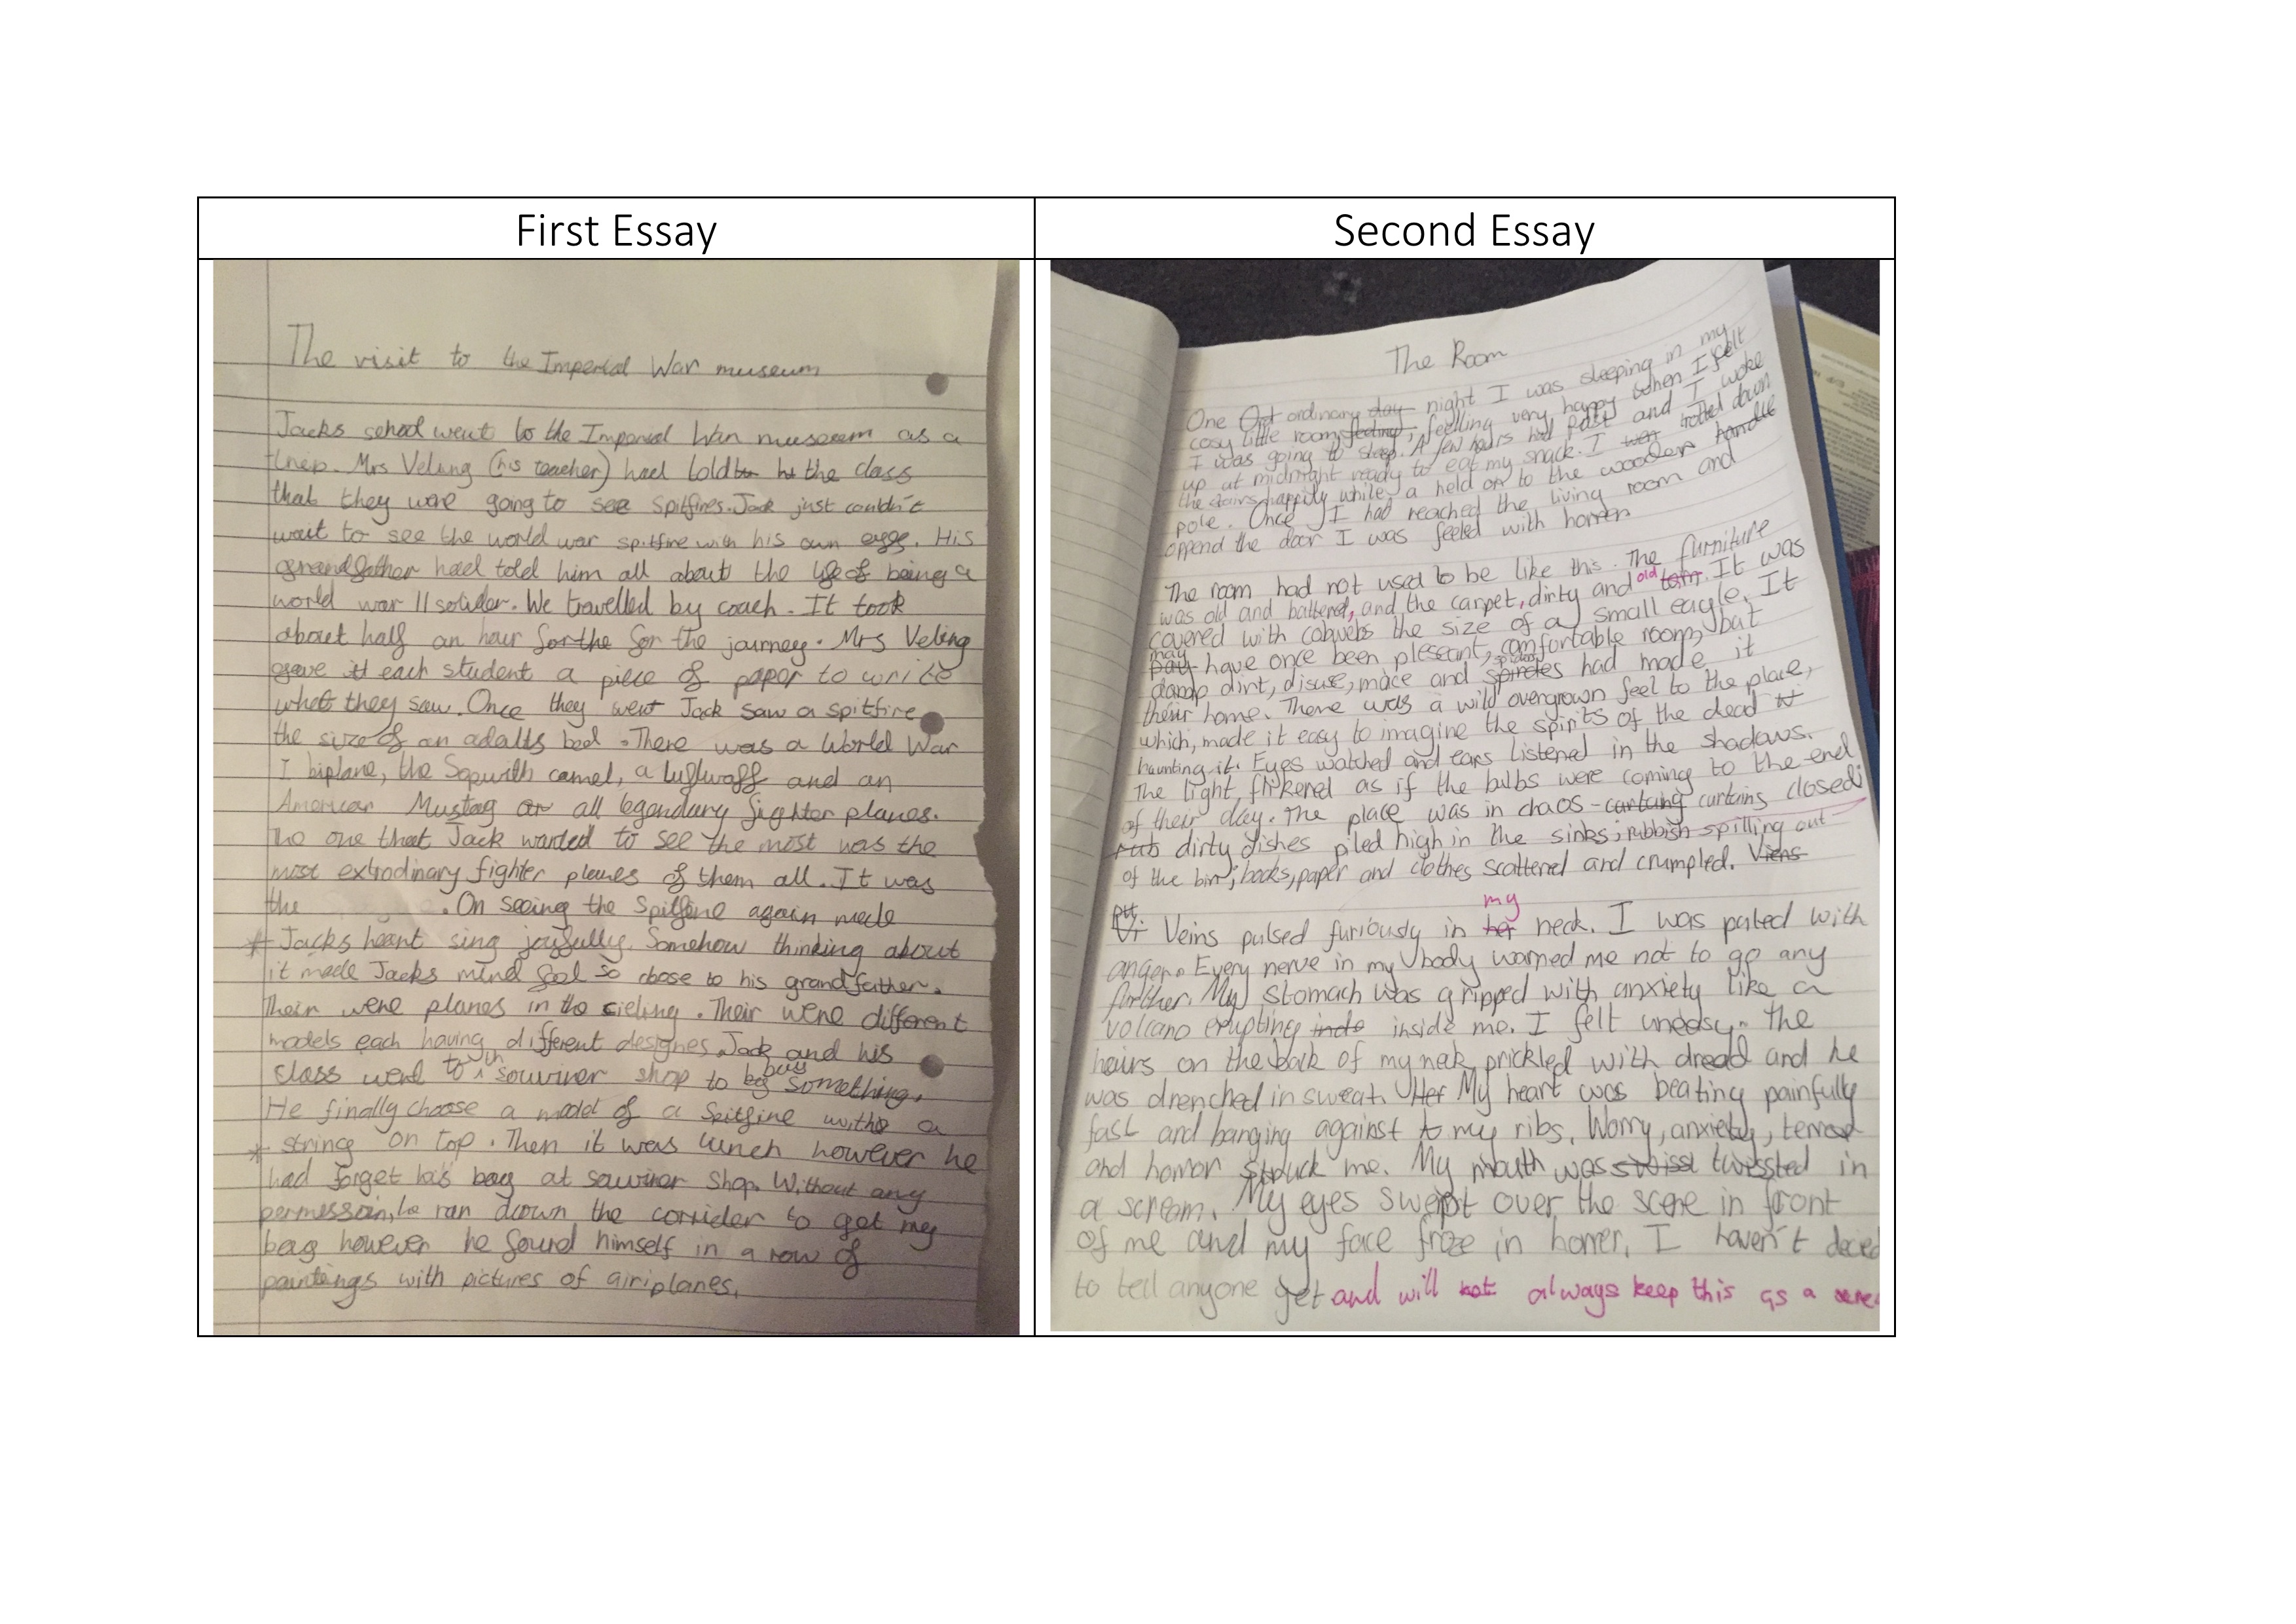 First Essay
The visit to the Imperial War museum
Jacks school went to the Imperial War museum as a
trip. Mrs Veling (his teacher) had told the class
that they were going to see Spitfires. Jack just couldn't
wait to see the world war spitfire with his own eyes. His
grandfather had told him all about the life of being a
world war II solider. We travelled by coach. It took
about half an hour for the for the journey. Mrs Veling
gave it each student a piece of paper to write
what they saw. Once they went Jack saw a spitfire
the size of an adalts bed. There was a World War
I biplane, the Sopwith camel, a luftwaff and an
American Mustag or all legendary fighter planes.
The one that Jack wanted to see the most was the
most extrodinary fighter planes of them all. It was
the . On seeing the Spitfire again made
* Jacks heart sing joyfully. Somehow thinking about
it made Jacks mind feel so close to his grandfather.
Their were planes in the cieling. Their were different
models each having different designes. Jack and his
with buy
class went to souviner shop to something.
He finally choose a model of a Spitfire with a
* string on top. Then it was lunch however he
had forget his bag at souviner shop. Without any
permission, he ran down the corrider to get my
bag however he found himself in a row of
paintings with pictures of airiplanes.
Second Essay
The Room
One Ort ordinary day night I was sleeping in my
cosy little room feeling, feelling very happy when I felt
I was going to sleep. A few hours had past and I woke
up at midnight ready to eat my snack. I wen trotted down
the stairs happily while a held on to the wooden handle
pole. Once I had reached the living room and
oppend the door I was feeled with horrer
The room had not used to be like this. The furniture
was old and battered, and the carpet, dirty and old torn. It was
covered with cobwebs the size of a small eagle. It
may
have once been pleseant, comfortable room, but
damp dirt, disuse, mace and spiders had made it
their home. There was a wild overgrown feel to the place,
which, made it easy to imagine the spirits of the dead
haunting it. Eyes watched and ears listened in the shadows.
The light flikered as if the bulbs were coming to the end
of their day. The place was in chaos - curtains closed;
rub dirty dishes piled high in the sinks; rubbish spilling out
of the bin; books, paper and clothes scattered and crumpled. Viens
my
Veins pulsed furiously in her neck. I was pulled with
anger. Every nerve in my body warned me not to go any
further. My stomach was gripped with anxiety like a
volcano erupting inside me. I felt uneasy. The
hairs on the back of my nek prickled with dread and he
was drenched in sweat. Her My heart was beating painfully
fast and banging against my ribs. Worry, anxiety, terror
and horror struck me. My mouth was twissted in
a scream. My eyes swept over the scene in front
of me and my face froze in horrer. I haven't decied
to tell anyone yet and will not always keep this as a